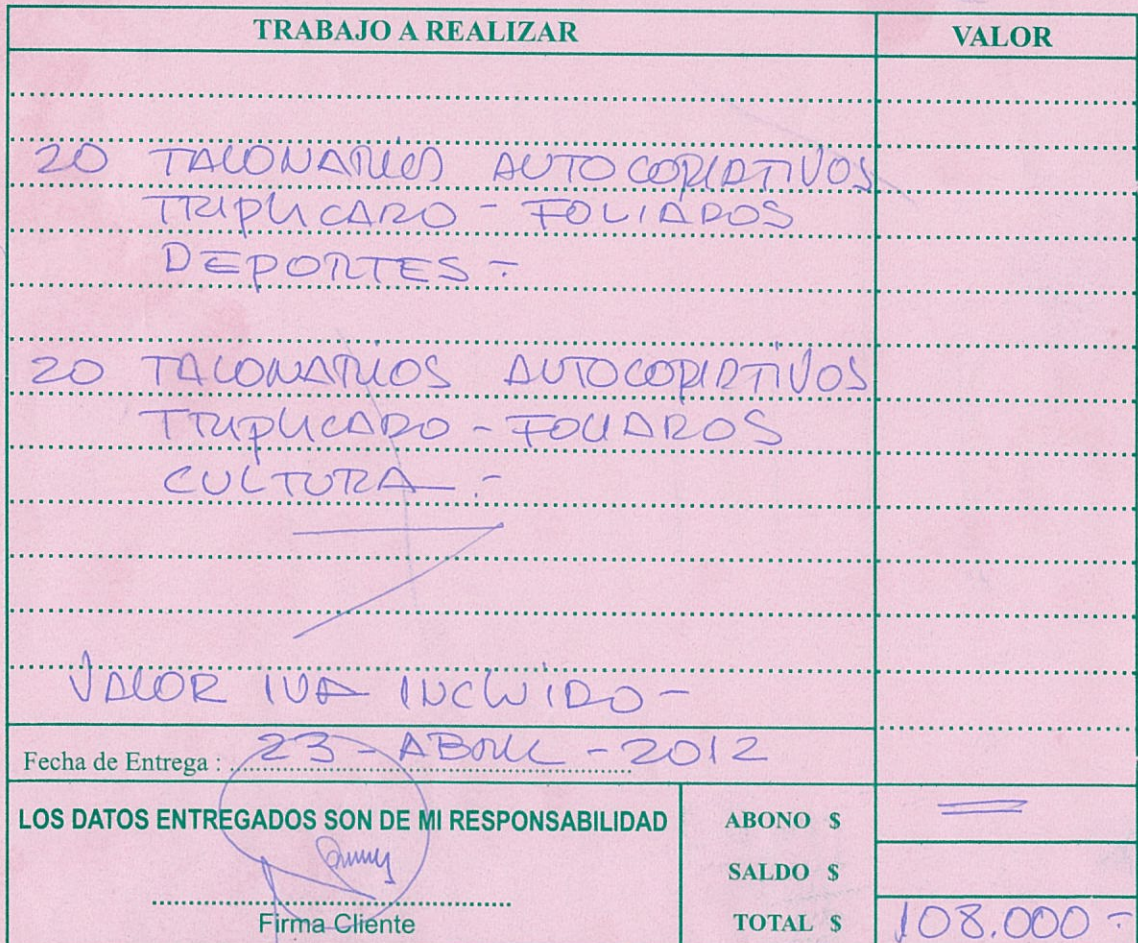 TRABAJO A REALIZAR VALOR
20 TALONARIOS AUTOCOPIATIVOS
TRIPLICADO - FOLIADOS
DEPORTES -
20 TALONARIOS AUTOCOPIATIVOS
TRIPLICADO - FOLIADOS
CULTURA .-
VALOR IVA INCLUIDO -
Fecha de Entrega : 23 - ABRIL - 2012
LOS DATOS ENTREGADOS SON DE MI RESPONSABILIDAD
ABONO $ =
SALDO $
Firma Cliente
TOTAL $ 108.000 -